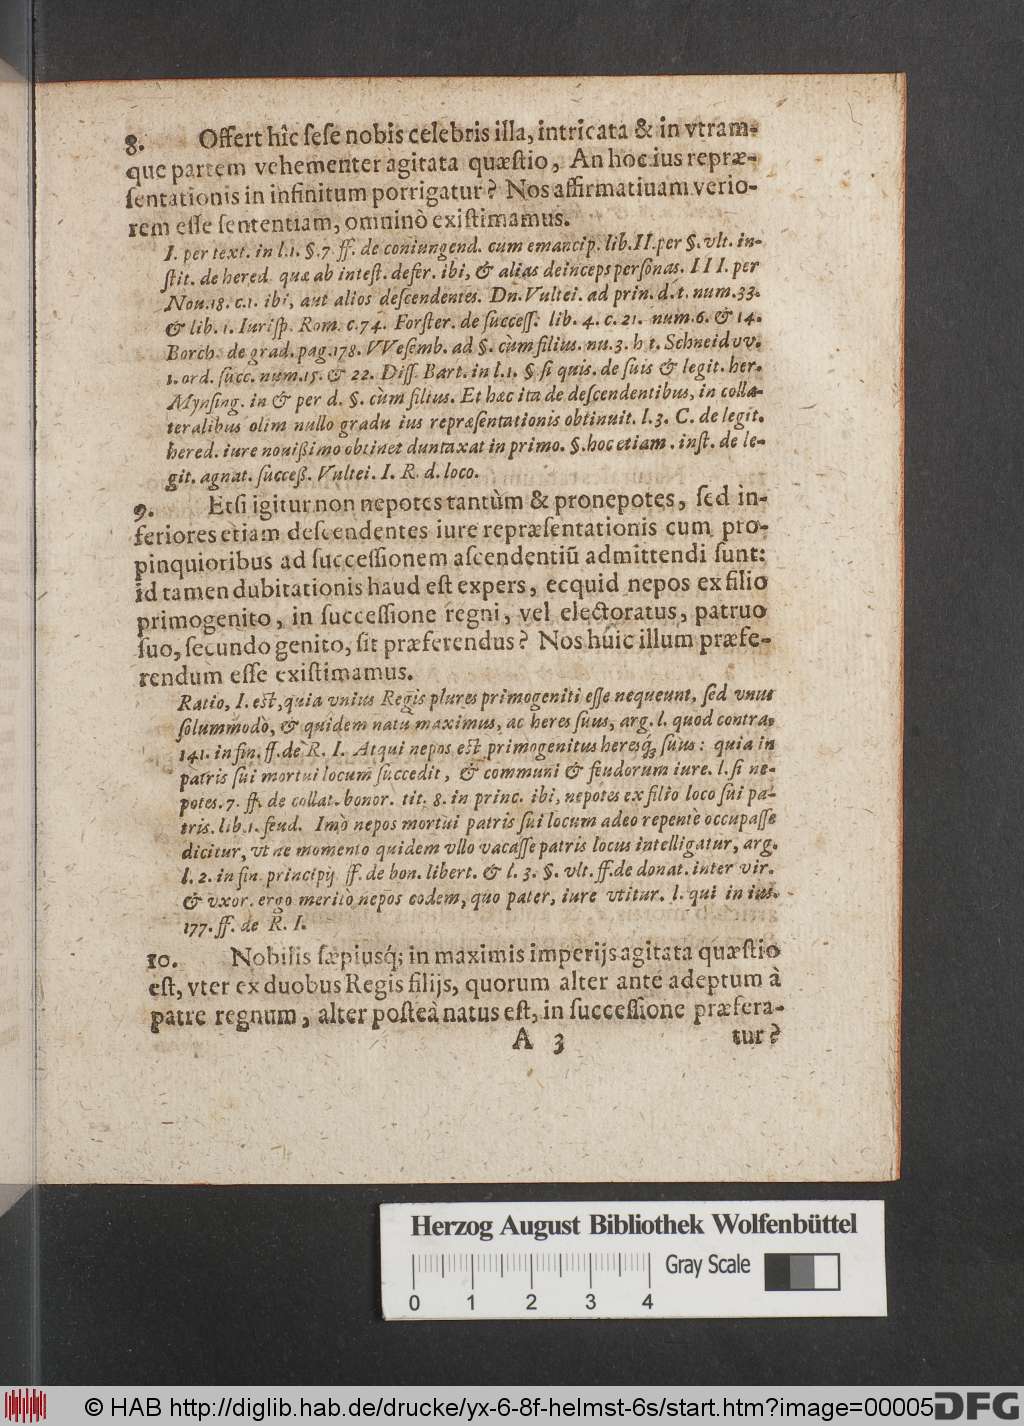 8. Offert hîc ſeſe nobis celebris illa, intricata & in vtram-
que partem vehementer agitata quæſtio, An hoc ius repræ-
ſentationis in infinitum porrigatur? Nos affirmatiuam verio-
rem eſſe ſententiam, omninò exiſtimamus.
I. per text. in l.1. §.7. ff. de coniungend. cum emancip. lib. II. per §. vlt. in-
ſtit. de hered. quæ ab inteſt. defer. ibi, & alias deinceps perſonas. III. per
Nou.18. c.1. ibi, aut alios deſcendentes. Dn. Vultei. ad prin. d. t. num.33.
& lib. 1. Iuriſp. Rom. c.74. Forſter. de ſucceſſ. lib. 4. c. 21. num. 6. & 14.
Borch. de grad. pag.178. VVeſemb. ad §. cùm filius. nu. 3. h t. Schneidvv.
1. ord. ſucc. num.15. & 22. Diſſ. Bart. in l.1. § ſi quis. de ſuis & legit. her.
Mynſing. in & per d. §. cùm filius. Et hæc ita de deſcendentibus, in colla-
teralibus olim nullo gradu ius repræſentationis obtinuit. l. 3. C. de legit.
hered. iure nouißimo obtinet duntaxat in primo. §. hoc etiam. inſt. de le-
git. agnat. ſucceß. Vultei. I. R. d. loco.
9. Etſi igitur non nepotes tantùm & pronepotes, ſed in-
feriores etiam deſcendentes iure repræſentationis cum pro-
pinquioribus ad ſucceſſionem aſcendentiũ admittendi ſunt:
id tamen dubitationis haud eſt expers, ecquid nepos ex filio
primogenito, in ſucceſſione regni, vel electoratus, patruo
ſuo, ſecundo genito, ſit præferendus? Nos huic illum præfe-
rendum eſſe exiſtimamus.
Ratio, I. eſt, quia vnius Regis plures primogeniti eſſe nequeunt, ſed vnus
ſolummodò, & quidem natu maximus, ac heres ſuus, arg. l. quod contra.
141. in fin. ff. de R. I. Atqui nepos eſt primogenitus heresq́; ſuus: quia in
patris ſui mortui locum ſuccedit, & communi & feudorum iure. l. ſi ne-
potes. 7. ff. de collat. bonor. tit. 8. in princ. ibi, nepotes ex filio loco ſui pa-
tris. lib. 1. feud. Imò nepos mortui patris ſui locum adeo repente occupaſſe
dicitur, vt ne momento quidem vllo vacaſſe patris locus intelligatur, arg.
l. 2. in fin. principij ff. de bon. libert. & l. 3. §. vlt. ff. de donat. inter vir.
& vxor. ergo meritò nepos eodem, quo pater, iure vtitur. l. qui in ius.
177. ff. de R. I.
10. Nobilis ſæpiusq́; in maximis imperijs agitata quæſtio
eſt, vter ex duobus Regis filijs, quorum alter ante adeptum à
patre regnum, alter poſteà natus eſt, in ſucceſſione præfera-
A 3 tur?
Herzog August Bibliothek Wolfenbüttel
Gray Scale
0 1 2 3 4
© HAB http://diglib.hab.de/drucke/yx-6-8f-helmst-6s/start.htm?image=00005
DFG